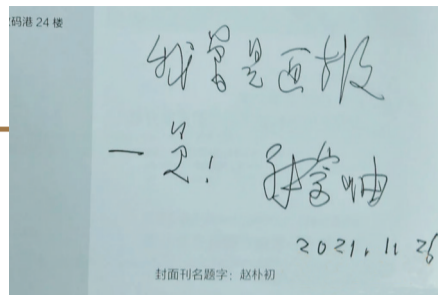 码港 24 楼
我曾是画报
一员!
2021.11.26
封面刊名题字：赵朴初